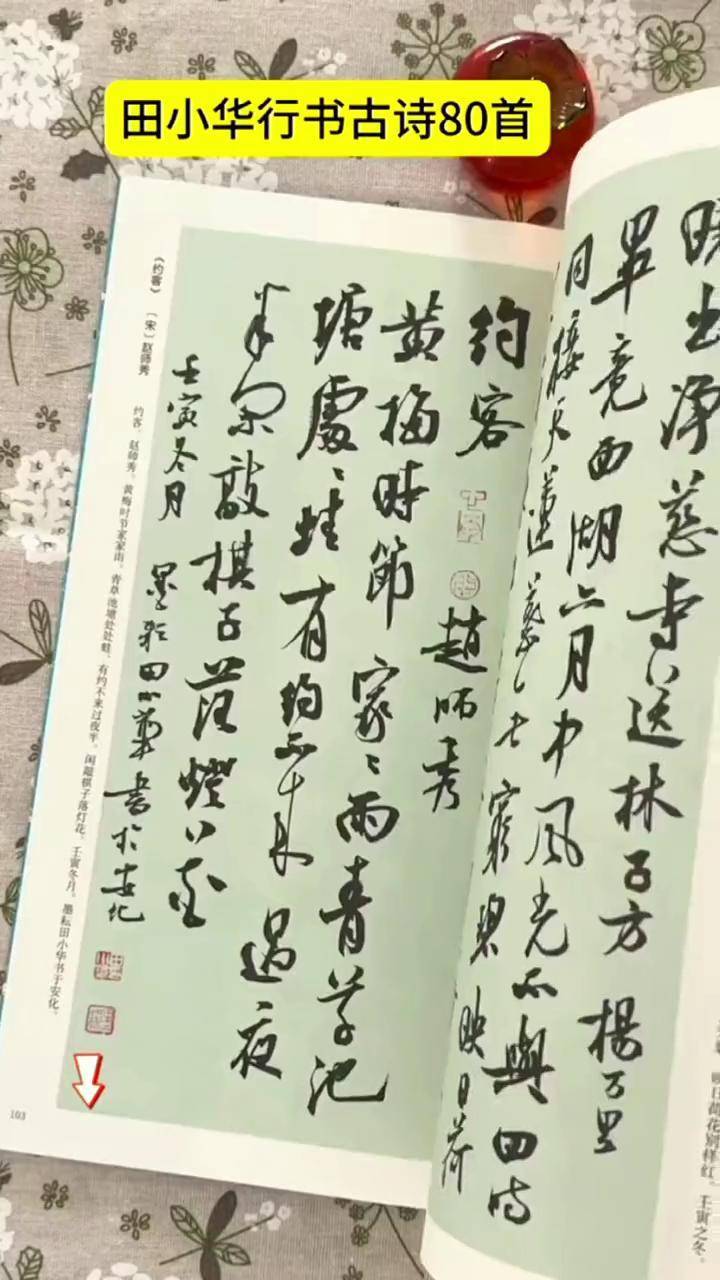 田小华行书古诗80首
晓出净慈寺送林子方 楊万里
畢竟西湖六月中風光不與四時
同接天蓮葉無窮碧映日荷
映日荷花别样红。壬寅之冬。
约客 趙師秀
黄梅時節家〻雨青草池
塘處〻蛙有约不来過夜
半閑敲棋子落燈花
壬寅冬月 墨耘田小華書於安化
《约客》 〔宋〕赵师秀
约客。赵师秀。黄梅时节家家雨。青草池塘处处蛙。有约不来过夜半。闲敲棋子落灯花。壬寅冬月。墨耘田小华书于安化。
103